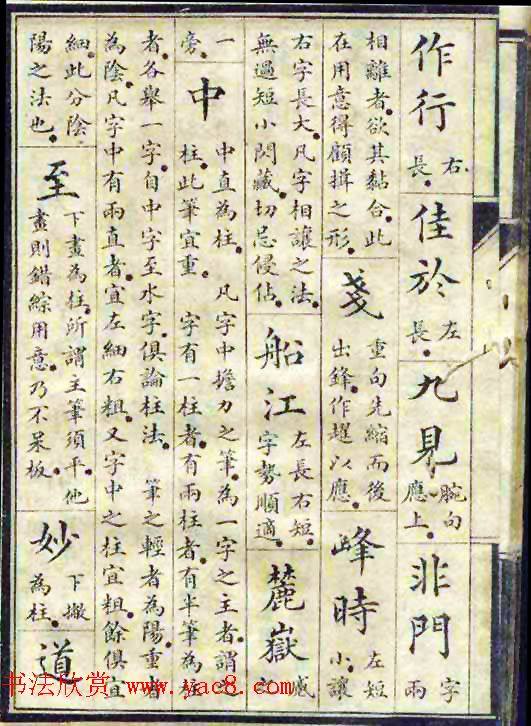 作行
右
長。
佳於
左
長。
九見
腕向
應上。
非門
字
兩
相離者。欲其黏合。此
在用意得顧揖之形。
戔
重向先縮而後
出鋒。作趯以應。
峰時
左短
小。讓
右字長大。凡字相讓之法。
無過短小閃藏。切忌侵佔。
船江
左長右短。
字勢順適。
麓嶽
一
旁。
中
中直為柱。凡字中擔力之筆。為一字之主者。謂之
柱。此筆宜重。字有一柱者。有兩柱者。有半筆為柱
者。各舉一字。自中字至水字。俱論柱法。筆之輕者為陽。重者
為陰。凡字中有兩直者。宜左細右粗。又字中之柱宜粗。餘俱宜
細。此分陰
陽之法也。
至
下畫為柱。所謂主筆須平。他
畫則錯綜用意。乃不呆板。
妙
下撇
為柱。
道
书法欣赏 www.yac8.com